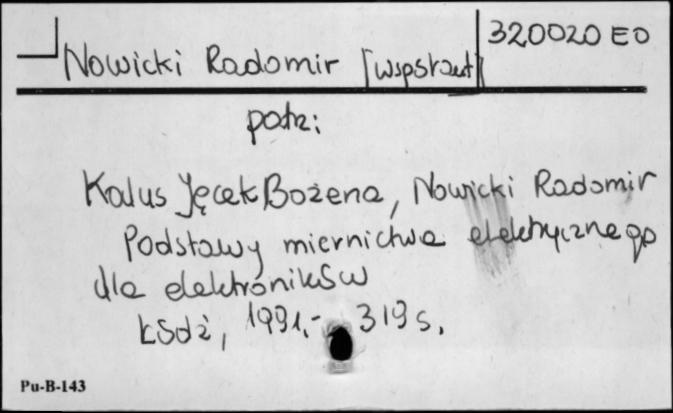 320020 EO
Nowicki Radomir [współaut]
patrz:
Kalus Jęcek Bożena, Nowicki Radomir
Podstawy miernictwa elektrycznego
dla elektroników
Łódź, 1991.- 319 s.
Pu-B-143